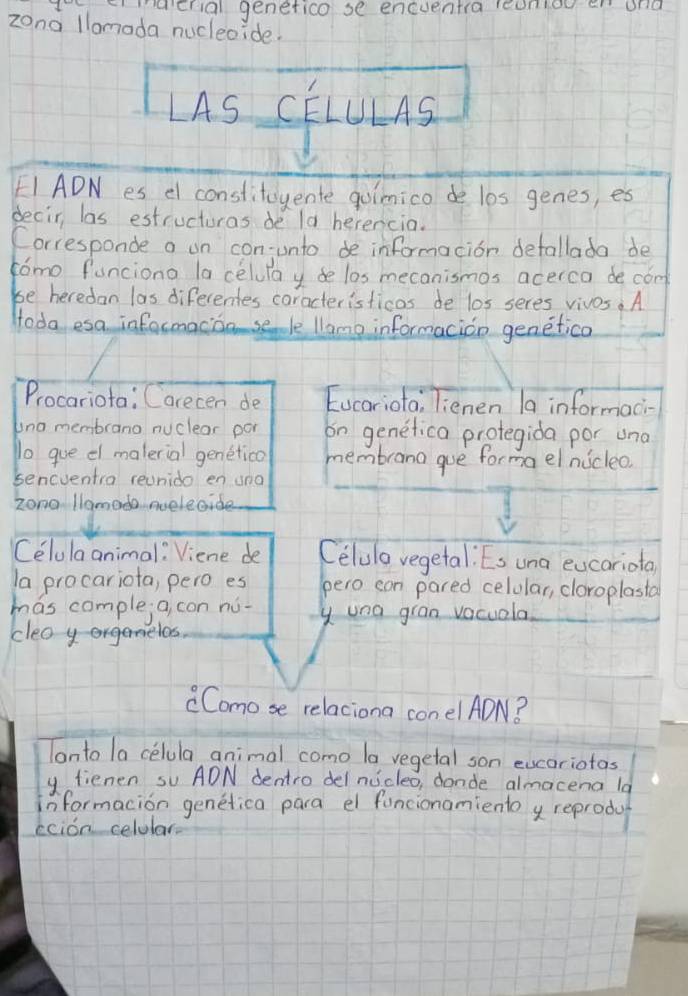 material genético se encuentra reunido en una
zona llamada nucleoide.
LAS CÉLULAS
El ADN es el constituyente químico de los genes, es
decir, las estructuras de la herencia.
Corresponde a un conjunto de información detallada de
cómo funciona la célula y de los mecanismos acerca de com
se heredan las diferentes características de los seres vivos. A
toda esa información se le llama información genética
Procariota: Carecen de
una membrana nuclear por
lo que el material genético
sencuentra reunido en una
zona llamada nucleoide
Eucariota: Tienen la informaci-
ón genética protegida por una
membrana que forma el núcleo.
Célula animal: Viene de
la procariota, pero es
más compleja, con nú-
cleo y organelos.
Célula vegetal: Es una eucariota,
pero con pared celular, cloroplasto
y una gran vacuola.
¿Como se relaciona con el ADN?
Tanto la célula animal como la vegetal son eucariotas
y tienen su ADN dentro del núcleo, donde almacena la
información genética para el funcionamiento y reprodu-
cción celular.